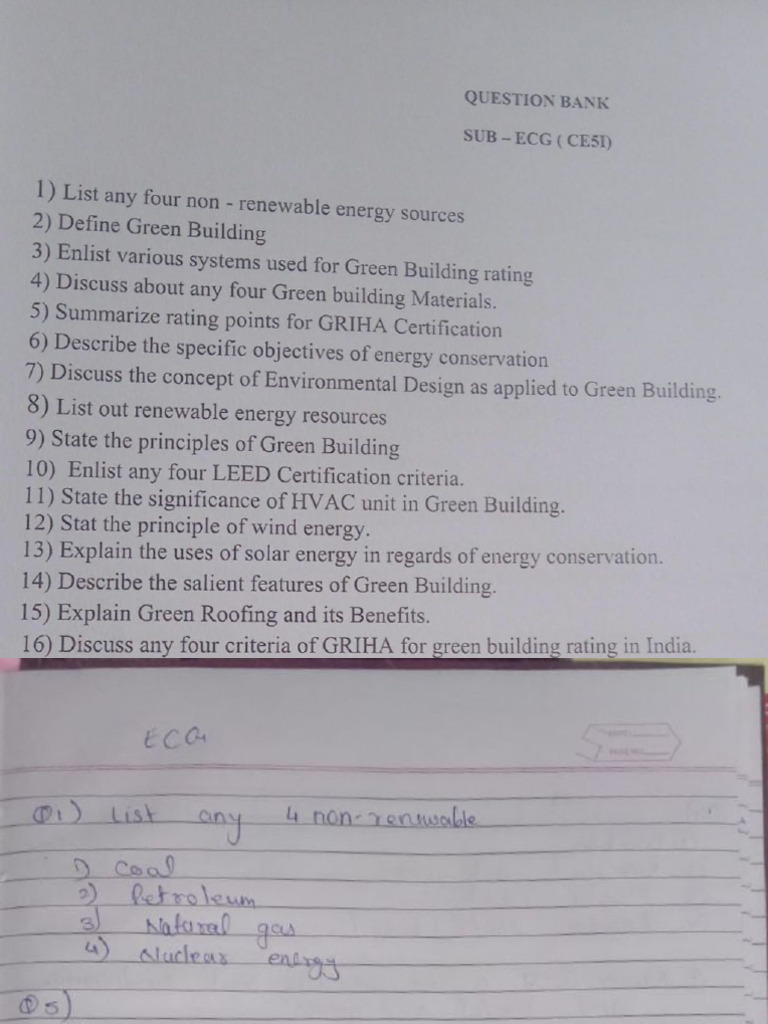 QUESTION BANK
SUB – ECG ( CE5I)
1) List any four non - renewable energy sources
2) Define Green Building
3) Enlist various systems used for Green Building rating
4) Discuss about any four Green building Materials.
5) Summarize rating points for GRIHA Certification
6) Describe the specific objectives of energy conservation
7) Discuss the concept of Environmental Design as applied to Green Building.
8) List out renewable energy resources
9) State the principles of Green Building
10) Enlist any four LEED Certification criteria.
11) State the significance of HVAC unit in Green Building.
12) Stat the principle of wind energy.
13) Explain the uses of solar energy in regards of energy conservation.
14) Describe the salient features of Green Building.
15) Explain Green Roofing and its Benefits.
16) Discuss any four criteria of GRIHA for green building rating in India.
ECG
Q1) List any 4 non-renuwable
1) Coal
2) Petroleum
3) Natural gas
4) Nuclear energy
Q5)